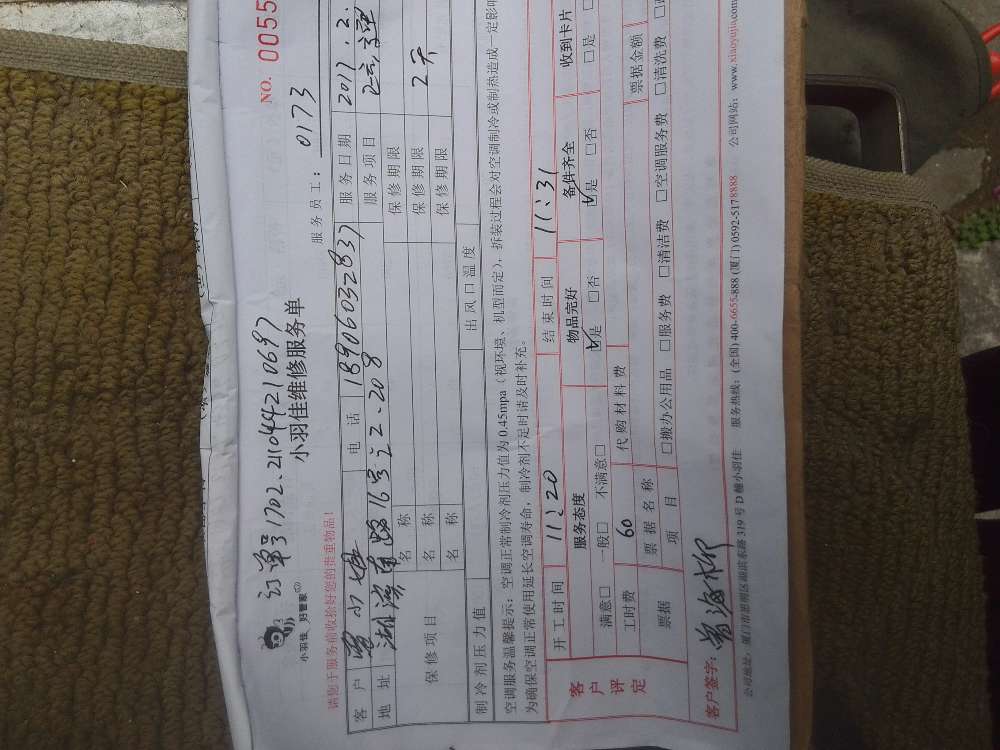 NO. 0055
订单号1702.2104421 0697
小羽佳 好管家
小羽佳维修服务单
服务员工： 0173
请您于服务前收拾好您的贵重物品！
客户 曾小姐 电话 18906032837 服务日期 2017.2.
地址 湖滨南路16号之2.208 服务项目
保修项目
名称 保修期限
名称 保修期限 2天
名称 保修期限
制冷剂压力值 出风口温度
空调服务温馨提示：空调正常制冷剂压力值为0.45mpa（视环境、机型而定），拆装过程会对空调制冷或制热造成一定影响
为确保空调正常使用延长空调寿命，制冷剂不足时请及时补充。
客户评定
开工时间 11:20 结束时间 11:31
服务态度 物品完好 备件齐全 收到卡片
满意□ 一般□ 不满意□ ☑是 □否 ☑是 □否 □是
工时费 60 代购材料费
票据 票据名称 票据金额
项目 □搬办公用品 □服务费 □清洁费 □空调服务费 □清洗费
客户签字： 曾海柳
公司地址：厦门市思明区湖滨东路319号D幢小羽佳 服务热线：(全国) 400-6655-888 (厦门) 0592-5178888 公司网站：www.xiaoyujia.com